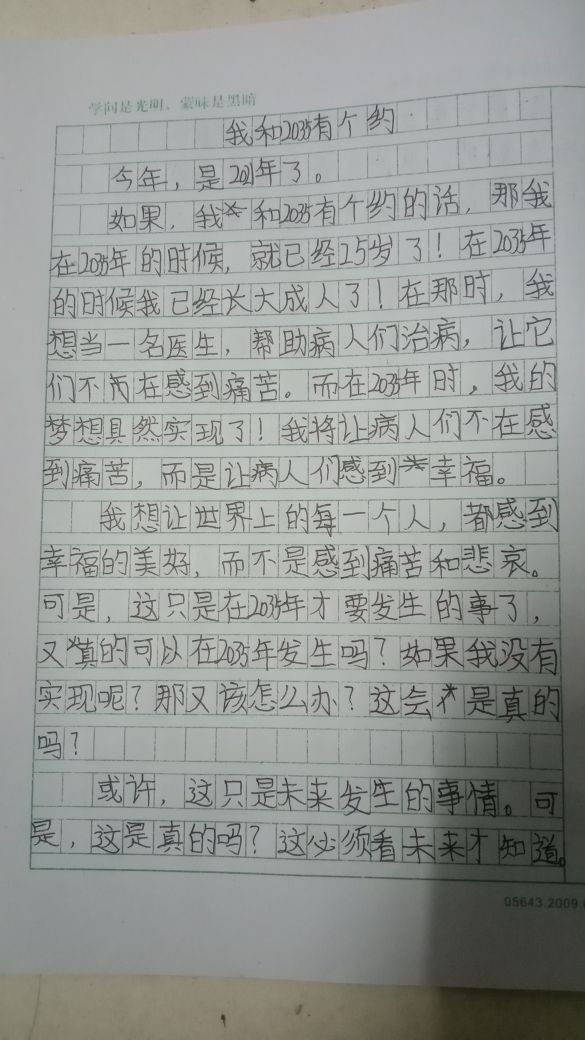 学问是光明、蒙昧是黑暗
我和2035有个约
今年，是2021年了。
如果，我和2035有个约的话，那我
在2035年的时候，就已经25岁了！在2035年
的时候我已经长大成人了！在那时，我
想当一名医生，帮助病人们治病，让它
们不再在感到痛苦。而在2035年时，我的
梦想具然实现了！我将让病人们不在感
到痛苦，而是让病人们感到幸福。
我想让世界上的每一个人，都感到
幸福的美好，而不是感到痛苦和悲哀。
可是，这只是在2035年才要发生的事了，
又真的可以在2035年发生吗？如果我没有
实现呢？那又该怎么办？这会是真的
吗？
或许，这只是未来发生的事情。可
是，这是真的吗？这必须看未来才知道。
05643 2009.